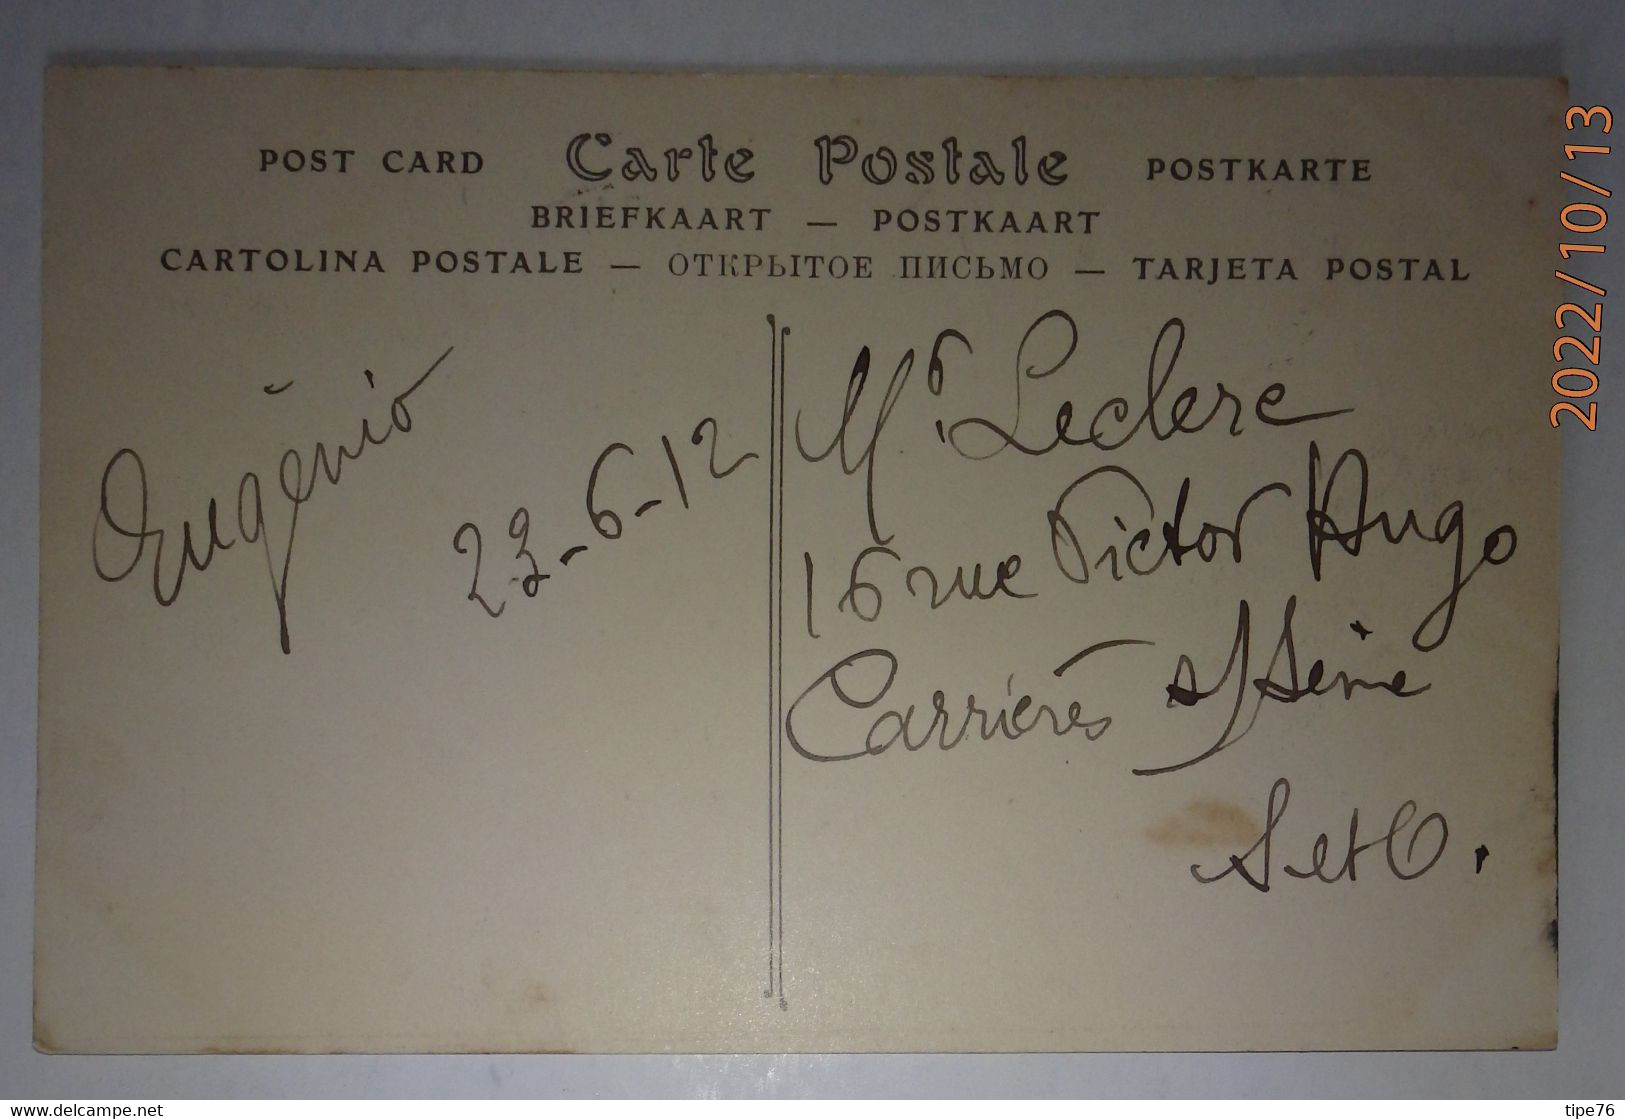 POST CARD Carte Postale POSTKARTE
BRIEFKAART — POSTKAART
CARTOLINA POSTALE — ОТКРЫТОЕ ПИСЬМО — TARJETA POSTAL
Eugénio
23-6-12
Mr Leclerc
16 rue Victor Hugo
Carrières s/Seine
S et O.
2022/10/13
www.delcampe.net
tipe76